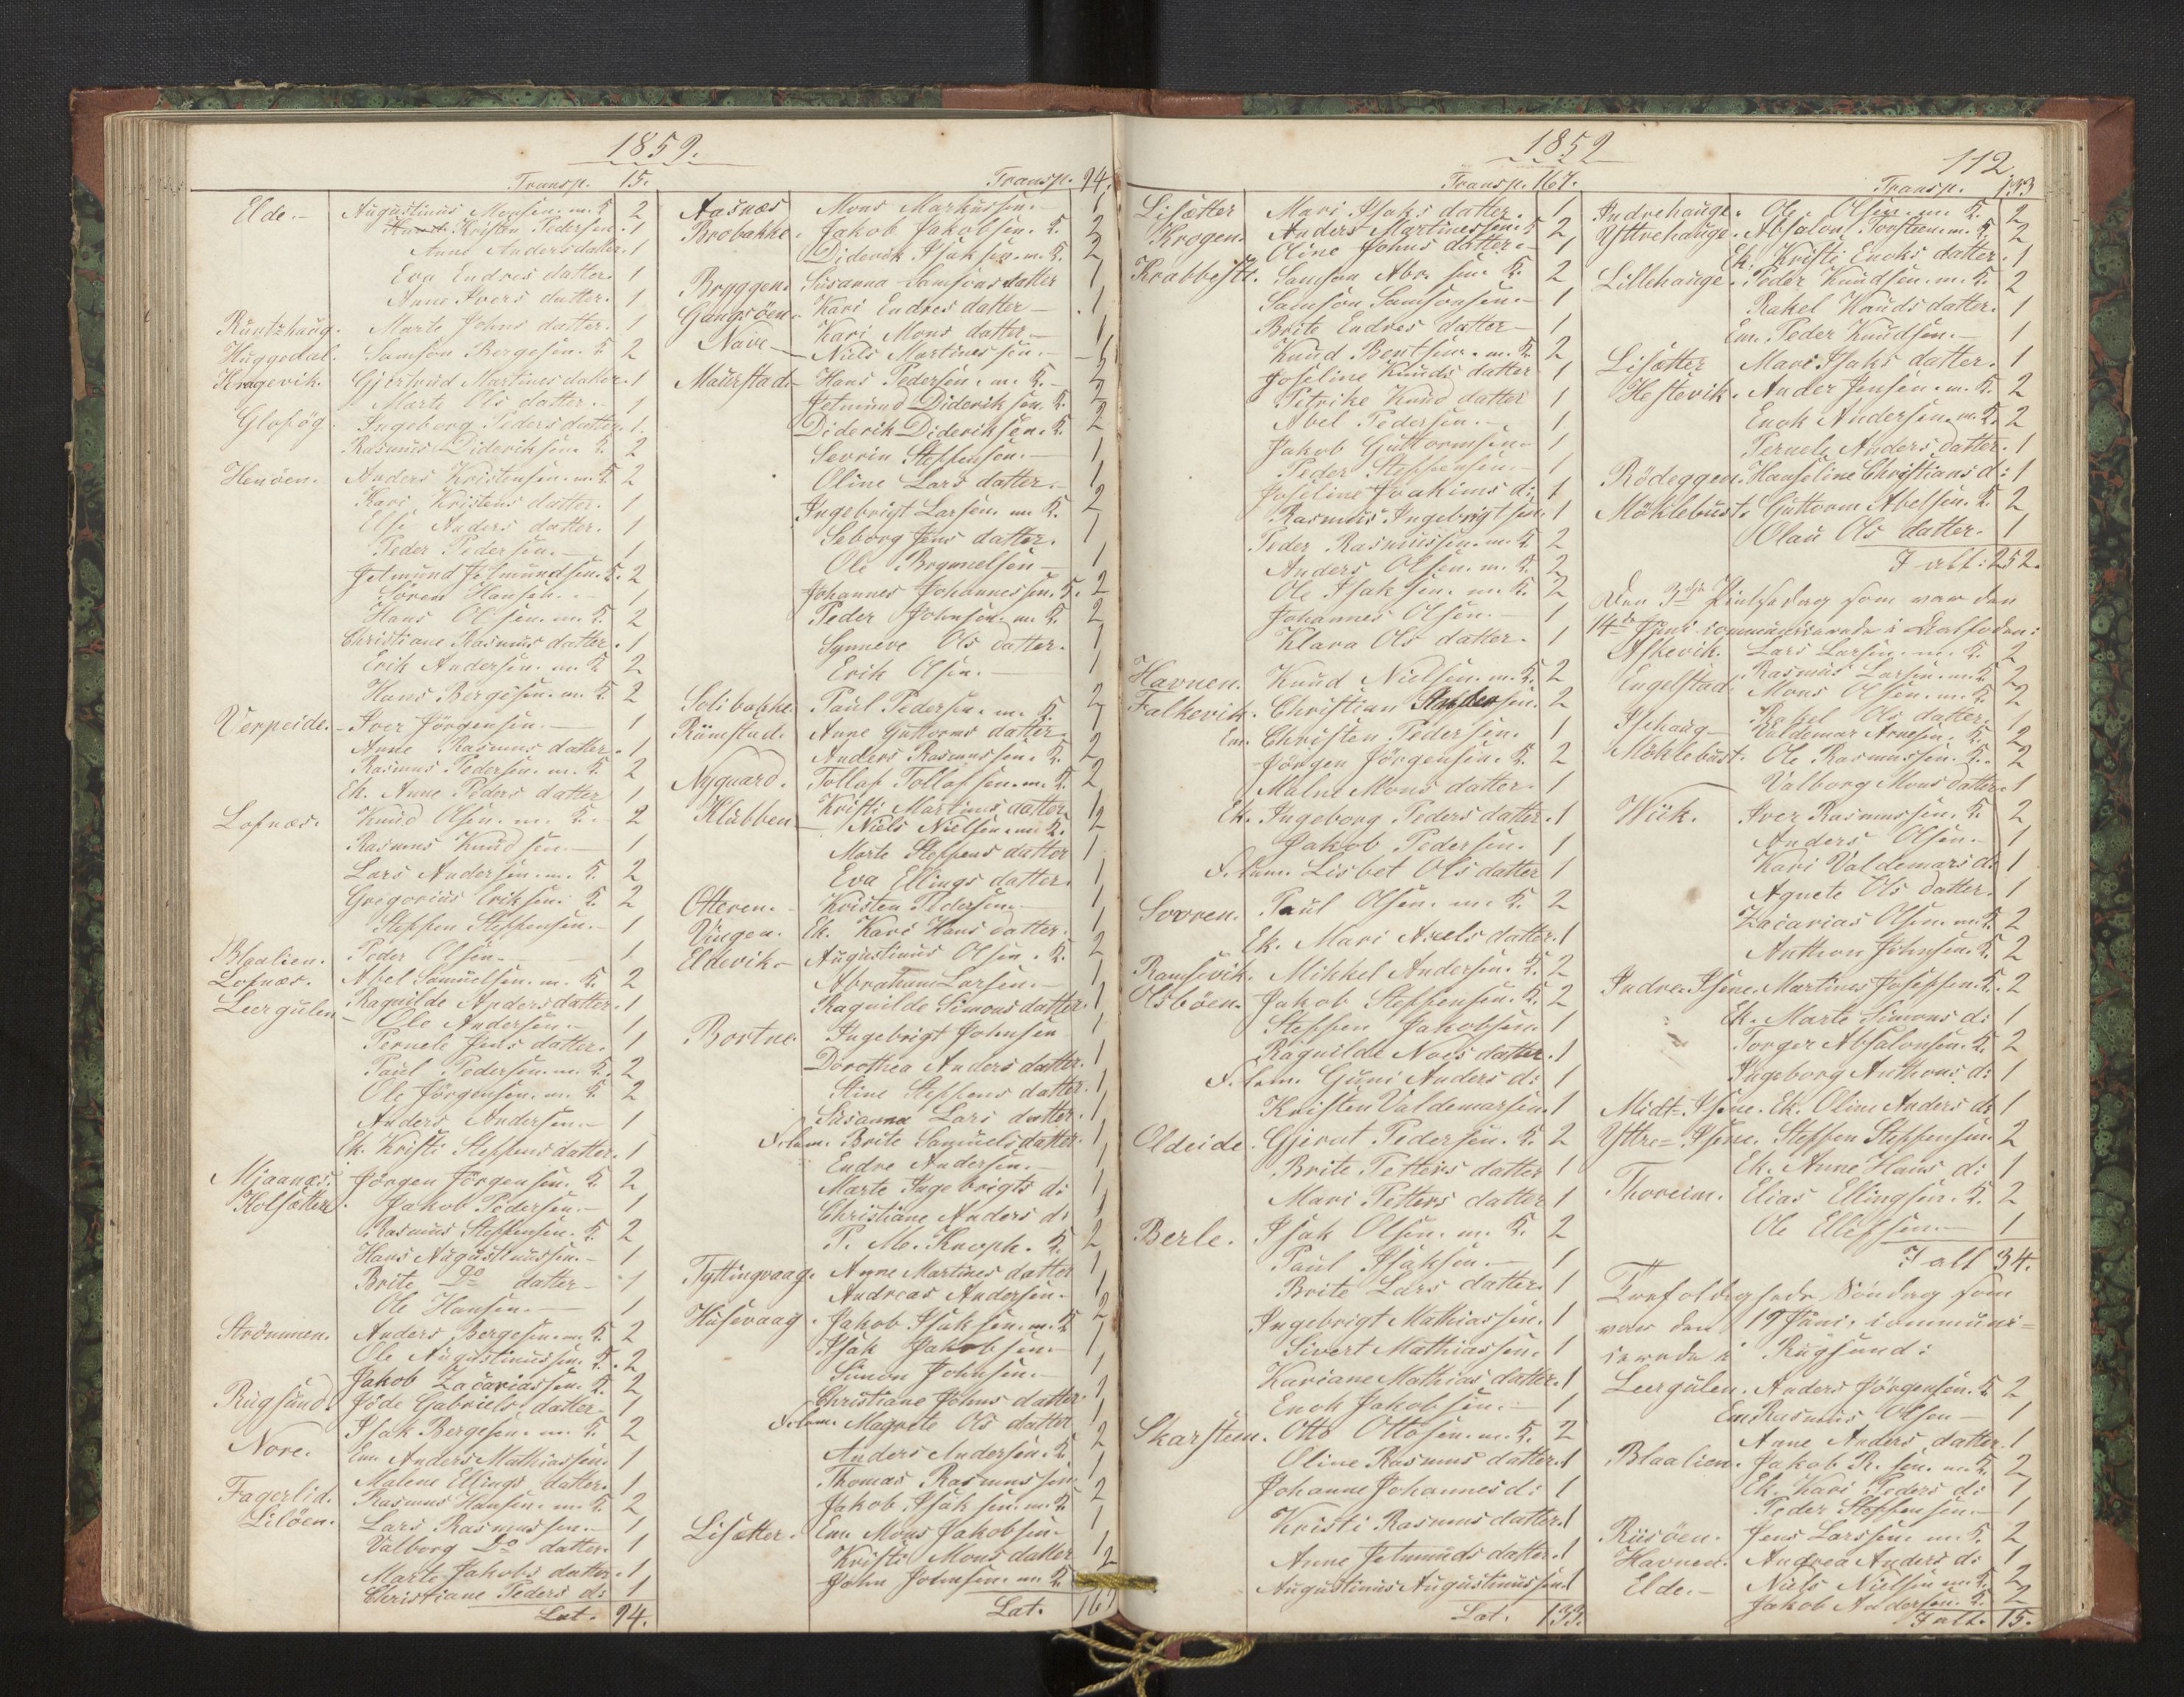 1859.
Transp. 15.
Elde. - Augustinus Monsen. m. K. 2
Kristen Pedersen. 1
Anne Andersdatter. 1
Eva Endres datter. 1
Anne Ivers datter. 1
Runtzhaug. Marte Johns datter. 1
Huggedal. Samson Bergesen. K. 2
Kragevik. Gjertrud Martines datter. 1
Marte Ols datter. - 1
Glopög. Ingeborg Peders datter. 1.
Rasmus Dideriksen. K. 2
Henöen. Anders Kristensen. m. K. 2
Kari Kristens datter. 1
Anders datter. 1
Peder Pedersen. - 1
Jetmund Jetmundsen. K. 2
Sören Hansen. - 1
Hans Olsen. m. K. 2
Christiane Rasmus datter. 1
Erik Andersen. m. K. 2
Hans Bergesen. m. K. 2
Verpeide. - Iver Jörgensen. - 1
Anne Rasmus datter. 1
Rasmus Pedersen. m. K. 2
Ek. Anne Peders datter 1
Lofnæs. Knud Olsen. m. K. - 2
Rasmus Knudsen. - 1
Lars Andersen. m. K. 2
Grigorius Eriksen. K. 2
Steffen Steffensen. - 1
Blaalien. Peder Olsen. - 1
Lofnæs. Abel Samuelsen. m. K. 2
Leergulen - Ragnilde Anders datter. 1
Ole Andersen. - 1
Pernele Jens datter. 1
Paul Pedersen. m. K. 2
Ole Jörgensen. m. K. 2
Anders Andersen. - 1
Ek. Kristi Steffens datter. 1
Mjaanæs. Jörgen Jörgensen. K. 2
Kolsætter. Jakob Pedersen. - 1
Rasmus Steffensen. K. 2
Hans Augustinussen. - 1
Brite Do datter - 1
Ole Hansen. - 1
Strömmen. Anders Bergesen. m. K. 2
Ole Augustinussen. K. 2
Jakob Zacariassen. K. 2
Rugsund. Jöde Gabriels datter. 1
Isak Bergesen. m. K. 2
Nore. Em. Anders Mathiassen. 1
Malene Ellings datter. 1
Fagerlid. Rasmus Hansen. m. K. 2
Liloen. Lars Rasmussen. - 1
Valborg Do datter. 1
Marte Jakobs datter. 1
Christiane Peders d: 1
Lat. 94.
Transp. 94.
Aasnæs Mons Markussen. - 1
Brobakke. Jakob Jakobsen. K. 2
Diderik Isaksen. m. K. 2
Bryggen. Susanna Samsons datter 1
Gangsöen. Kari Endres datter - 1
Nave - Kari Mons datter - 1
Niels Martinessen. - 1
Maurstad. - Hans Pedersen. m. K. - 2
Jetmund Dideriksen. K. 2
Diderik Dideriksen. K. 2
Sevrin Steffensen. - 1
Oline Lars datter. - 1
Ingebrigt Larsen. m. K. 2
Seborg Jens datter. 1
Ole Brynnelsen - 1
Johannes Johannessen. K. 2
Peder Johnsen. m. K. 2
Synneve Ols datter. 1
Erik Olsen. - 1
Solibakke. Paul Pedersen. m. K. 2
Rumstad. Anne Guttorms datter. 1
Anders Rasmussen. K. 2
Nygaard. Tollaf Tollafsen. m. K. 2
Klubben - Kristi Martines datter 1
Niels Nielsen. m. K. 2
Marte Steffens datter 1
Eva Ellings datter. 1
Otteren. - Kristen Pedersen. - 1
Vingen. Ek. Kari Hans datter. 1
Eldevik - Augustinus Olsen. K. 2
Abraham Larsen. - 1
Ragnilde Simons datter. 1
Bortne. Ingebrigt Johnsen 1
Dorothea Anders datter. 1
Stine Steffens datter. 1
Susanna Lars datter. 1
Brite Samuels datter. 1
Endre Andersen. - 1
Marte Ingebrigts d: 1
Christiane Anders d: 1
P. M. Knoph. K. 2
Tyttingvaag. Anne Martines datter 1
Andreas Andersen. 1
Husevaag. Jakob Isaksen. m. K. 2
Isak Jakobsen. 1
Simon Johnsen. - 1
Christiane Johns datter. 1
Magrete Ols datter 1
Anders Andersen. K. 2
Thomas Rasmussen 1
Jakob Isaksen. m. K. 2
Lisætter. Em. Mons Jakobsen. 1
Kristi Mons datter 1
John Johnsen. m. K. 2
Lat. 167
1859
112
Transp. 167.
Lisætter Mari Isaks datter. 1
Krogen. Anders Martinessen. K. 2
Oline Johns datter. - 1
Krabbestl. Samson Abr. sen. K. 2
Samson Samsonsen. - 1
Brite Endres datter - 1
Knud Bentsen. m. K. 2
Joseline Knuds datter 1
Petrike Knud datter 1
Abel Pedersen. - 1
Jakob Guttormsen. 1
Peder Steffensen. - 1
Joseline Joakims d: 1
Rasmus Ingebrigtsen. 1
Peder Rasmussen. m. K. 2
Anders Olsen. m. K. 2
Ole Isaksen. m. K. 2
Johannes Olsen. - 1
Klara Ols datter. 1
Havnen. Knud Nielsen. m. K. 2
Falkevik. Christian sen. 2
Em. Christen Pedersen. 1
Jörgen Jörgensen. K. 2
Malne Mons datter. 1
Ek. Ingeborg Peders datter. 1
Jakob Pedersen. 1
Lisbet Ols datter 1
Sorren. Paul Olsen. m. K. 2
Ek. Mari Axels datter. 1
Ramsevik. Mikkel Andersen. K. 2
Olsböen. Jakob Steffensen. K. 2
Steffen Jakobsen. 1
Ragnilde Noes datter. 1
Guni Anders d: 1
Kristen Valdemarsen. 1
Oldeide. Gjerat Pedersen. K. 2
Brite Petters datter 1
Mari Petters datter 1
Berle. Isak Olsen. m. K. 2
Paul Isaksen - 1
Brite Lars datter. 1
Ingebrigt Mathiassen. 1
Sivert Mathiassen. 1
Kariane Mathias datter. 1
Enok Jakobsen. - 1
Skarsteen. Otto Ottosen. m. K. 2
Oline Rasmus datter. 1
Johanne Johannes d: 1
Kristi Rasmus datter. 1
Anne Jetmunds datter. 1
Augustinus Augustinussen. 1
Lat. 133.
Transp. 133
Indrehauge. Ole Olsen. m. K. 2
Yttrehauge. Absalon Torsteen. m. K. 2
Ek. Kristi Enoks datter. 1
Lillehauge. Peder Knudsen. m. K. 2
Rakel Knuds datter. 1
Em. Peder Knudsen. - 1
Lisætter Mari Isaks datter. 1
Hestevik. Ander Jensen. m. K. 2
Enok Andersen. m. K. 2
Pernele Anders datter. 1
Rödeggen. Hanseline Christians d: 1
Möklebust. Guttorm Abelsen. K. 2
Olau Ols datter. 1
I alt: 252.
Den 3die Pintsedag som var den
14de Juni communiserede i Dalsoden:
Askevik. Lars Larsen. m. K. 2
Rasmus Larsen. m. K. 2
Engelstad. Mons Olsen. m. K. 2
Rakel Ols datter. 1
Isehaug - Valdemar Arnesen. K. 2
Möklebust. Ole Rasmussen. K. 2
Valborg Mons datter. 1
Wiik. Iver Rasmussen. K. 2
Anders Olsen. - 1
Kari Valdemars d: 1
Agnete Ols datter. 1
Zacarias Olsen. m. K. 2
Anthon Johnsen. K. 2
Indre-Isene. Martines Josefsen. K. 2
Ek. Marte Simons d: 1
Torger Absalonsen. K. 2
Ingeborg Anthons d: 1
Midt-Isene. Ek. Oline Anders d: 1
Yttre=Isene. Steffen Steffensen 2
Ek. Anne Hans d: 1
Thoreim. Elias Ellingsen. K. 2
Ole Ellefsen. - 1
I alt 34.
Trefoldigheds Söndag som
var den 19 Juni, communi=
serede i Rugsund:
Leergulen. Anders Jörgensen. K. 2
Em. Rasmus Olsen - 1
Anne Anders datter. 1
Blaalien. Jakob R. sen. m. K. 2
Ek. Kari Peders d: 1
Peder Steffensen. - 1
Riisöen. Jens Larssen. m. K. 2
Havnen. Andrea Anders d: 1
Elde. - Niels Nielsen m. K. 2
Jakob Andersen. K. 2
I alt. 15.